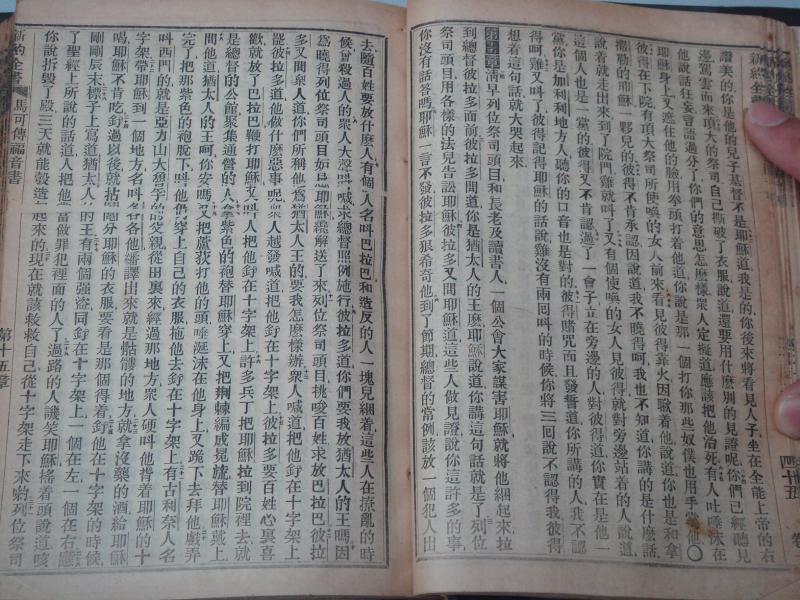 四十五
讚美的你是他的兒子基督不是耶穌道我是的你後來將看見人子坐在全能上帝的右
邊駕雲而來頂大的祭司自己撕破了衣服說道還要用什麼別的見證呢你們已經聽見
他說話狂妄會語過分了你們的意思怎麼樣衆人定擬道應該把他治死有人吐唾沫在
耶穌身上又遮住他的臉用拳頭打着他道你說是那一個打你那些奴僕也用手掌他〇
彼得在下院有頂大祭司所使喚的女人前來看見彼得靠火因瞅着他說道你也是和拿
撒勒的耶穌一夥兒的彼得不肯承認因說道我不曉得呵我也不知道你講的是什麼話
說着就走出來到了院門雞就叫了又有個使喚的女人見彼得就對旁邊站着的人說道
這個人也是一黨的彼得又不肯認過了一會子立在旁邊的人對彼得道你實在是他們一
黨你是加利利地方人聽你的口音也是對的彼得賭咒而且發誓道你所講的人我不認
得雞又叫了彼得記得耶穌的話說雞沒有兩回叫的時候你將三回說不認得我彼得
想着這句話就大哭起來
第十五章清早列位祭司頭目和長老及讀書人一個公會大家謀害耶穌就將他綑起來拉
到總督彼拉多面前彼拉多問道你是猶太人的王麽耶穌說道你講這句話就是了列位
祭司頭目用各樣的法兒告訟耶穌彼拉多又問耶穌道這些人做見證說你這許多的事
你沒有話答嗎耶穌一言不發彼拉多狠希奇他到了節期總督的常例該放一個犯人出
去隨百姓要放什麼人有個人名叫巴拉巴和造反的人一塊兒綑着這些人在撩亂的時
候曾殺過人的衆人大聲叫喊求總督照例施行彼拉多道你們要我放猶太人的王嗎因
爲曉得列位祭司頭目妬忌耶穌纔解送了來列位祭司頭目挑唆百姓求放巴拉巴彼拉
多又問衆人道你們所稱他爲猶太人王的要我怎麼樣辦衆人喊道把他釘在十字架上
彼拉多道他做什麼惡事呢衆人越發喊道把他釘在十字架上彼拉多要百姓心裏喜
歡就放了巴拉巴鞭打耶穌又叫人把他釘在十字架上許多兵丁把耶穌拉到院裡去就
是總督的公館聚集通營的人拿紫色的袍替耶穌穿上又把荆棘編成冕旒替耶穌戴上
問他道猶太人的王呵你安嗎又把蘆荻打他的頭唾涎沫在他身上又跪下去拜他戲弄
完了把那紫色的袍脫下叫他仍穿上自己的衣服拖他去釘在十字架上有古利奈人名
叫西門的就是亞力山大魯孚的父親從田裏來經過那地方衆人硬叫他背着耶穌的十
字架帶耶穌到一個地方名叫各各他繙譯出來就是骷髏的地方就拿沒藥的酒給耶穌
喝耶穌不肯吃釘過以後就拈鬮分耶穌的衣服要看是那個得着釘他在十字架的時候
剛剛辰末標子上寫道猶太人的王有兩個強盜同釘在十字架上一個在左一個在右應
了聖經上所說的話道人把他當做罪犯裡面的人了過路的人譏笑耶穌搖着頭說道咳
你說折毀了殿三天就能彀造起來的現在就該救救自己從十字架走下來喲列位祭司
新約全書
馬可傳福音書
第十五章